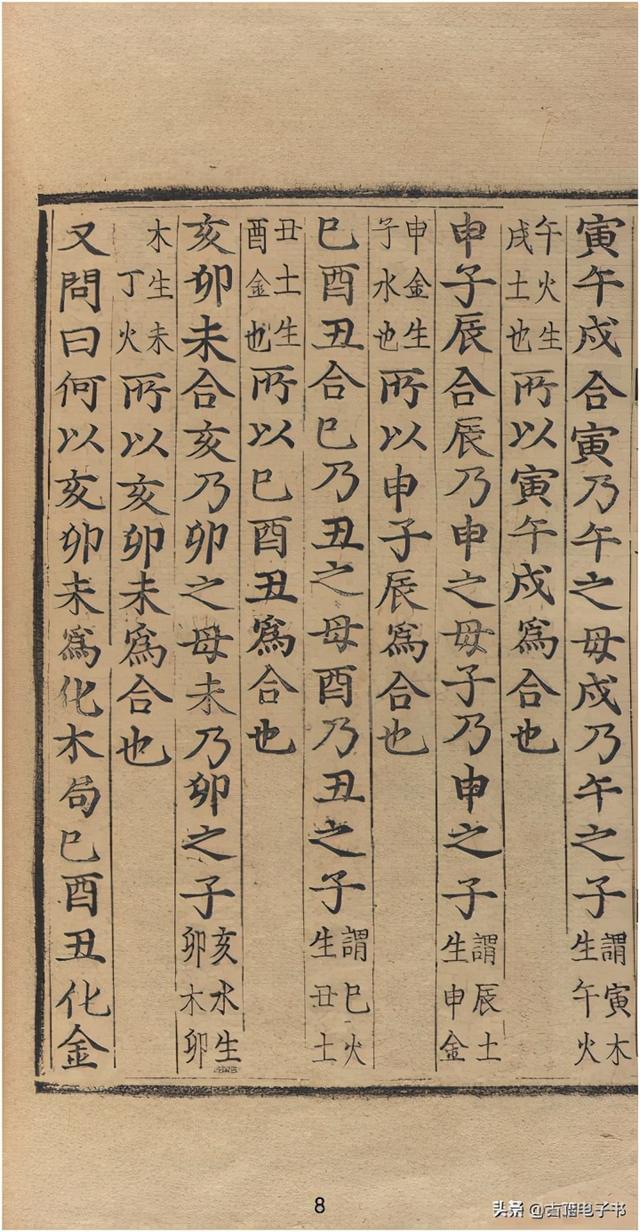 寅午戍合寅乃午之母戍乃午之子謂寅木生午火
午火生戌土也所以寅午戍爲合也
申子辰合辰乃申之母子乃申之子謂辰土生申金
申金生子水也所以申子辰爲合也
巳酉丑合巳乃丑之母酉乃丑之子謂巳火生丑土
丑土生酉金也所以巳酉丑爲合也
亥卯未合亥乃卯之母未乃卯之子亥水生卯木卯
木生未丁火所以亥卯未爲合也
又問曰何以亥卯未爲化木局巳酉丑化金
8
头条 @古籍电子书